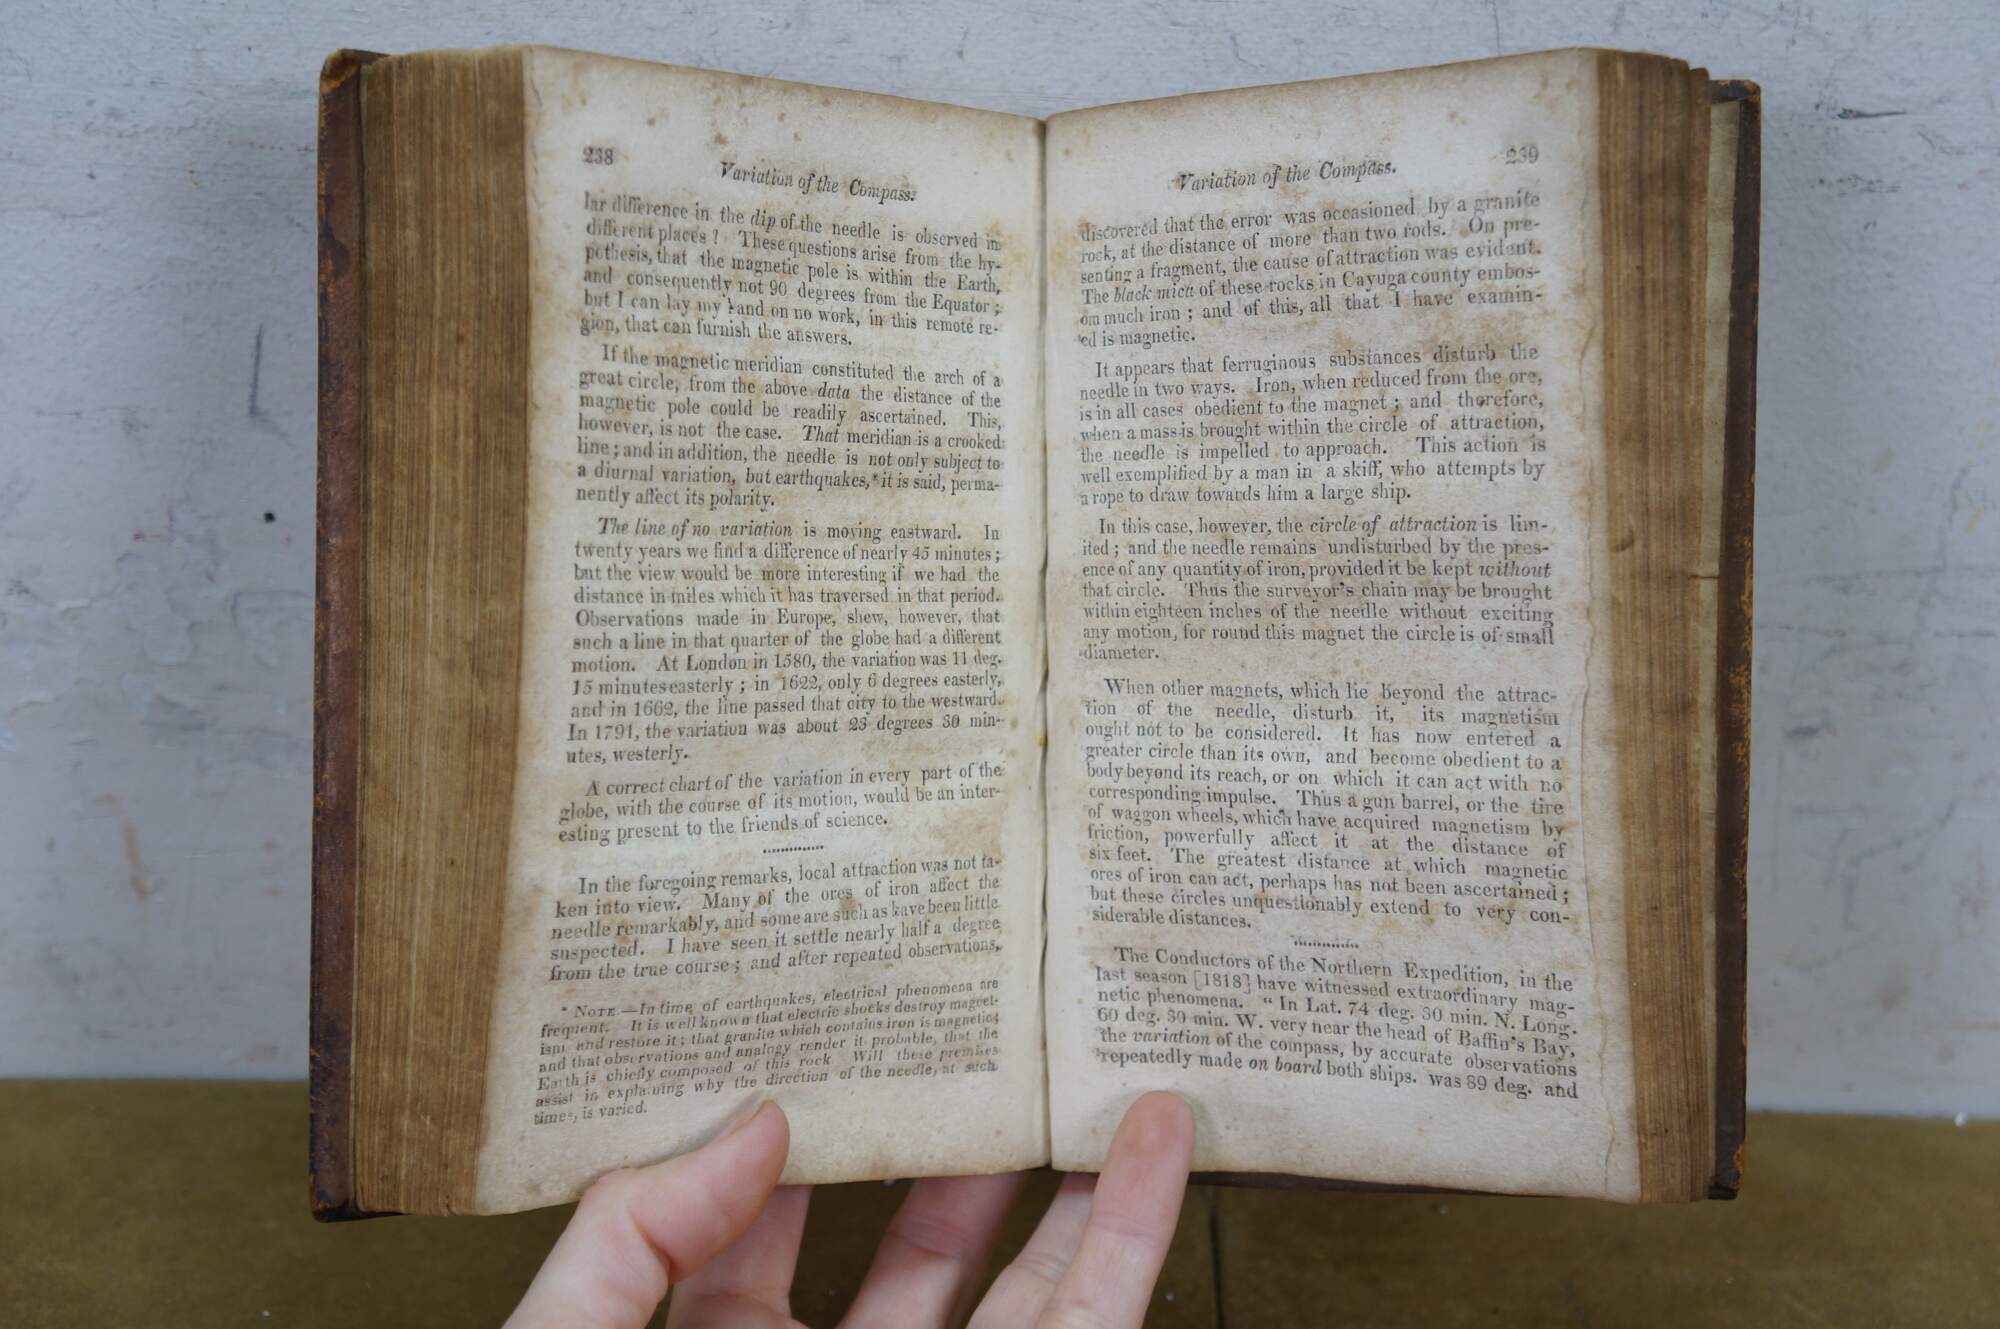 238
Variation of the Compass.
lar difference in the dip of the needle is observed in
different places ? These questions arise from the hy-
pothesis, that the magnetic pole is within the Earth,
and consequently not 90 degrees from the Equator ;
but I can lay my hand on no work, in this remote re-
gion, that can furnish the answers.
If the magnetic meridian constituted the arch of a
great circle, from the above data the distance of the
magnetic pole could be readily ascertained. This,
however, is not the case. That meridian is a crooked
line ; and in addition, the needle is not only subject to
a diurnal variation, but earthquakes,* it is said, perma-
nently affect its polarity.
The line of no variation is moving eastward. In
twenty years we find a difference of nearly 45 minutes ;
but the view would be more interesting if we had the
distance in miles which it has traversed in that period.
Observations made in Europe, shew, however, that
such a line in that quarter of the globe had a different
motion. At London in 1580, the variation was 11 deg.
15 minutes easterly ; in 1622, only 6 degrees easterly,
and in 1662, the line passed that city to the westward.
In 1791, the variation was about 23 degrees 30 min-
utes, westerly.
A correct chart of the variation in every part of the
globe, with the course of its motion, would be an inter-
esting present to the friends of science.
In the foregoing remarks, local attraction was not ta-
ken into view. Many of the ores of iron affect the
needle remarkably, and some are such as have been little
suspected. I have seen it settle nearly half a degree
from the true course ; and after repeated observations,
* NOTE.—In time of earthquakes, electrical phenomena are
frequent. It is well known that electric shocks destroy magnet-
ism and restore it ; that granite which contains iron is magnetic ;
and that observations and analogy render it probable, that the
Earth is chiefly composed of this rock. Will these premises
assist in explaining why the direction of the needle, at such
times, is varied.
Variation of the Compass. 239
discovered that the error was occasioned by a granite
rock, at the distance of more than two rods. On pre-
senting a fragment, the cause of attraction was evident.
The black mica of these rocks in Cayuga county embos-
om much iron ; and of this, all that I have examin-
ed is magnetic.
It appears that ferruginous substances disturb the
needle in two ways. Iron, when reduced from the ore,
is in all cases obedient to the magnet ; and therefore,
when a mass is brought within the circle of attraction,
the needle is impelled to approach. This action is
well exemplified by a man in a skiff, who attempts by
a rope to draw towards him a large ship.
In this case, however, the circle of attraction is lim-
ited ; and the needle remains undisturbed by the pres-
ence of any quantity of iron, provided it be kept without
that circle. Thus the surveyor's chain may be brought
within eighteen inches of the needle without exciting
any motion, for round this magnet the circle is of small
diameter.
When other magnets, which lie beyond the attrac-
tion of the needle, disturb it, its magnetism
ought not to be considered. It has now entered a
greater circle than its own, and become obedient to a
body beyond its reach, or on which it can act with no
corresponding impulse. Thus a gun barrel, or the tire
of waggon wheels, which have acquired magnetism by
friction, powerfully affect it at the distance of
six feet. The greatest distance at which magnetic
ores of iron can act, perhaps has not been ascertained ;
but these circles unquestionably extend to very con-
siderable distances.
The Conductors of the Northern Expedition, in the
last season [1818] have witnessed extraordinary mag-
netic phenomena. " In Lat. 74 deg. 30 min. N. Long.
60 deg. 30 min. W. very near the head of Baffin's Bay,
the variation of the compass, by accurate observations
repeatedly made on board both ships. was 89 deg. and